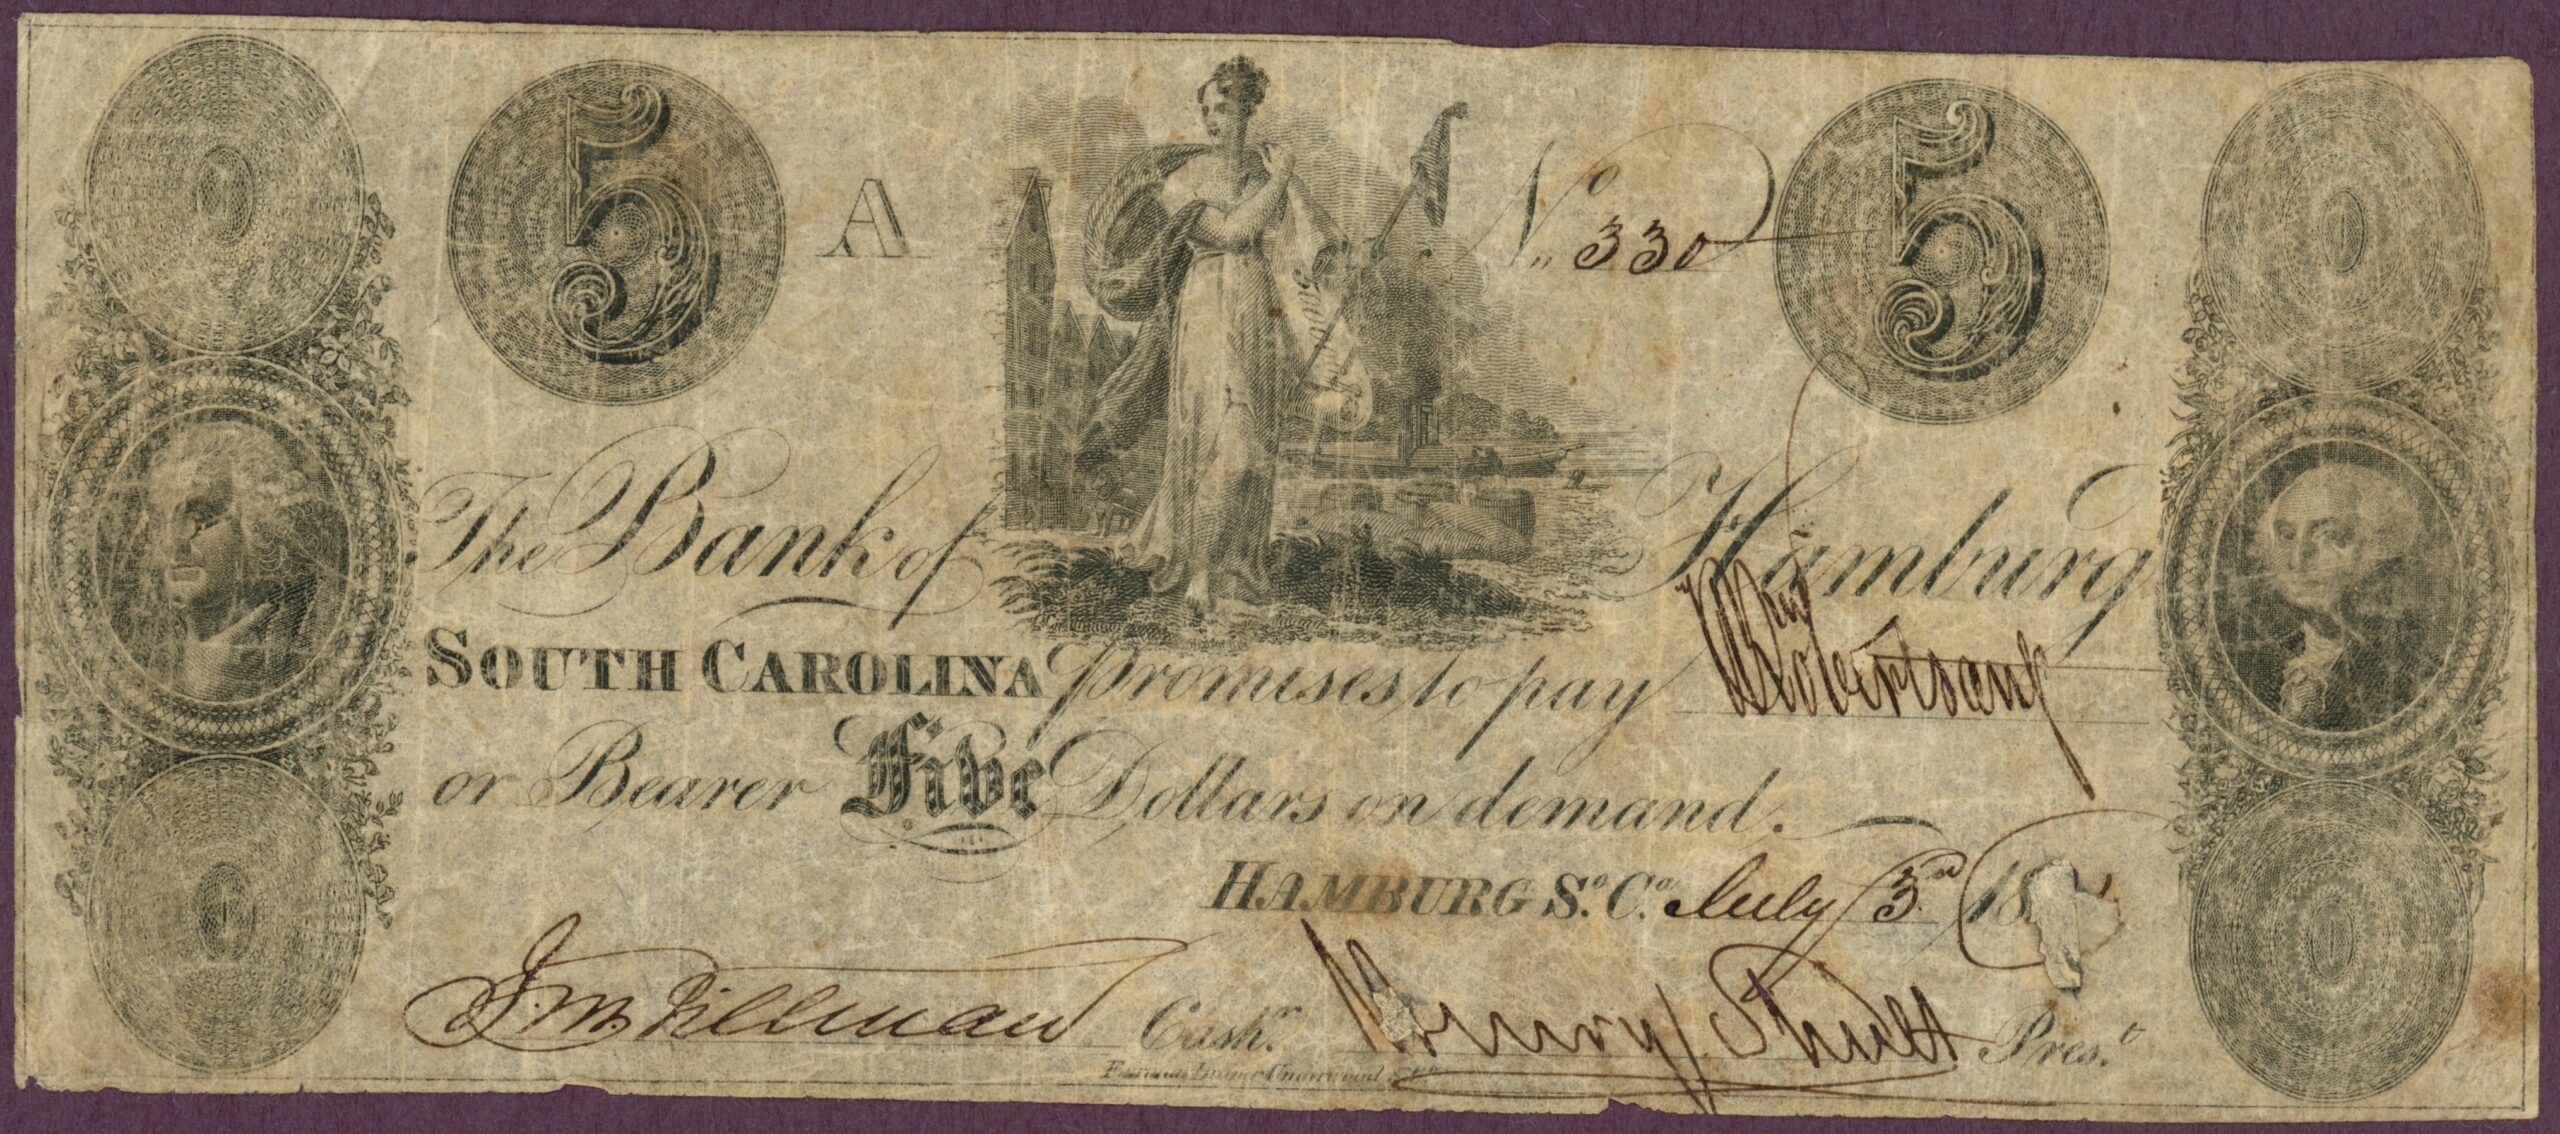 5 A Nº 330 5
The Bank of Hamburg
SOUTH CAROLINA Promises to pay
or Bearer Five Dollars on demand.
HAMBURG Sº. Cª. July 3rd 18
Cashr. Henry Shultz Prest.